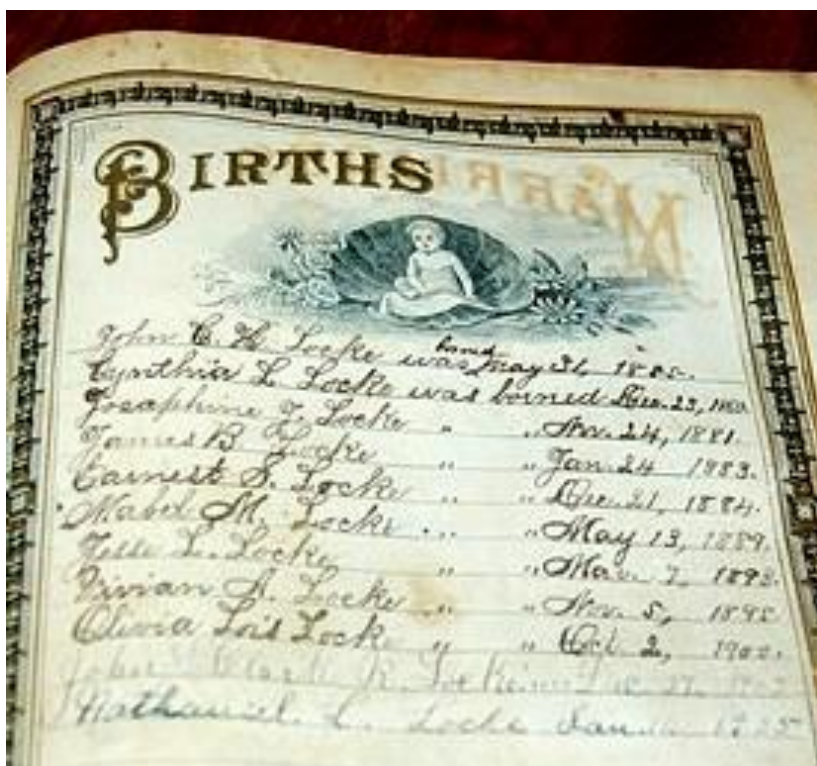 BIRTHS
John C. H. Locke was borned May 31,
Cynthia L. Locke was borned Dec. 23,
Josephine F. Locke " " Nov. 24, 1881.
James B. Locke " " Jan 24 1883.
Earnest S. Locke " " Dec. 21, 1884.
Mabel M. Locke " " May 13, 1889.
L. Locke " " Mar. 7,
Vivian A. Locke " " Nov. 5, 1895
Olivia Lois Locke " " Oct 2,
John Jr. Locke
Nathaniel L. Locke